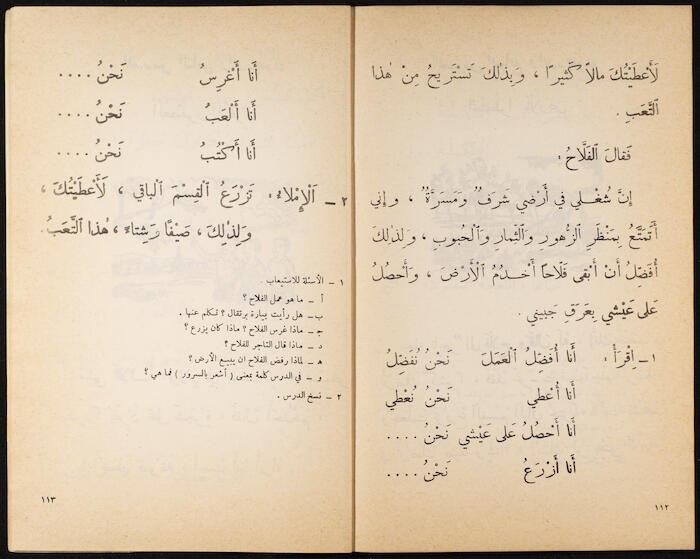 لَأَعْطَيْتُكَ مالاً كَثيرًا ، وَبِذٰلِكَ تَسْتَريحُ مِنْ هٰذا
ٱلتَّعَبِ .
فَقالَ ٱلفَلَّاحُ :
إِنَّ شُغْلي في أَرْضي شَرَفٌ وَمَسَرَّةٌ ، وإِني
أَتَمَتَّعُ بِمَنْظَرِ ٱلزُّهورِ وَٱلثِّمارِ وَٱلْحُبوبِ ، وَلِذٰلِكَ
أُفَضِّلُ أَنْ أَبْقى فَلّاحًا أَخْدُمُ ٱلْأَرْضَ ، وَأَحْصُلُ
عَلى عَيْشي بِعَرَقِ جَبيني .
١ – اِقْرَأْ : أَنا أُفَضِّلُ ٱلْعَمَلَ نَحْنُ نُفَضِّلُ
أَنا أُعْطي نَحْنُ نُعْطي
أَنا أَحْصُلُ عَلى عَيْشي نَحْنُ ....
أَنا أَزْرَعُ نَحْنُ ....
١١٢
أَنا أَغْرِسُ نَحْنُ ....
أَنا أَلْعَبُ نَحْنُ ....
أَنا أَكْتُبُ نَحْنُ ....
٢ – اَلْإِملاءُ : تَزْرَعُ ٱلْقِسْمَ ٱلْباقي ، لَأَعْطَيْتُكَ ،
وَلِذٰلِكَ ، صَيْفًا وَشِتاءً ، هٰذا ٱلتَّعَبُ.
١ – الأسئلة للاستيعاب .
أ – ما هو عمل الفلاح ؟
ب – هل رأيت بيارة برتقال ؟ تكلم عنها .
ج – ماذا غرس الفلاح ؟ ماذا كان يزرع ؟
د – ماذا قال التاجر للفلاح ؟
ه – لماذا رفض الفلاح ان يبيع الأرض ؟
و – في الدرس كلمة بمعنى ( أشعر بالسرور ) فما هي ؟
٢ – نسخ الدرس .
١١٣